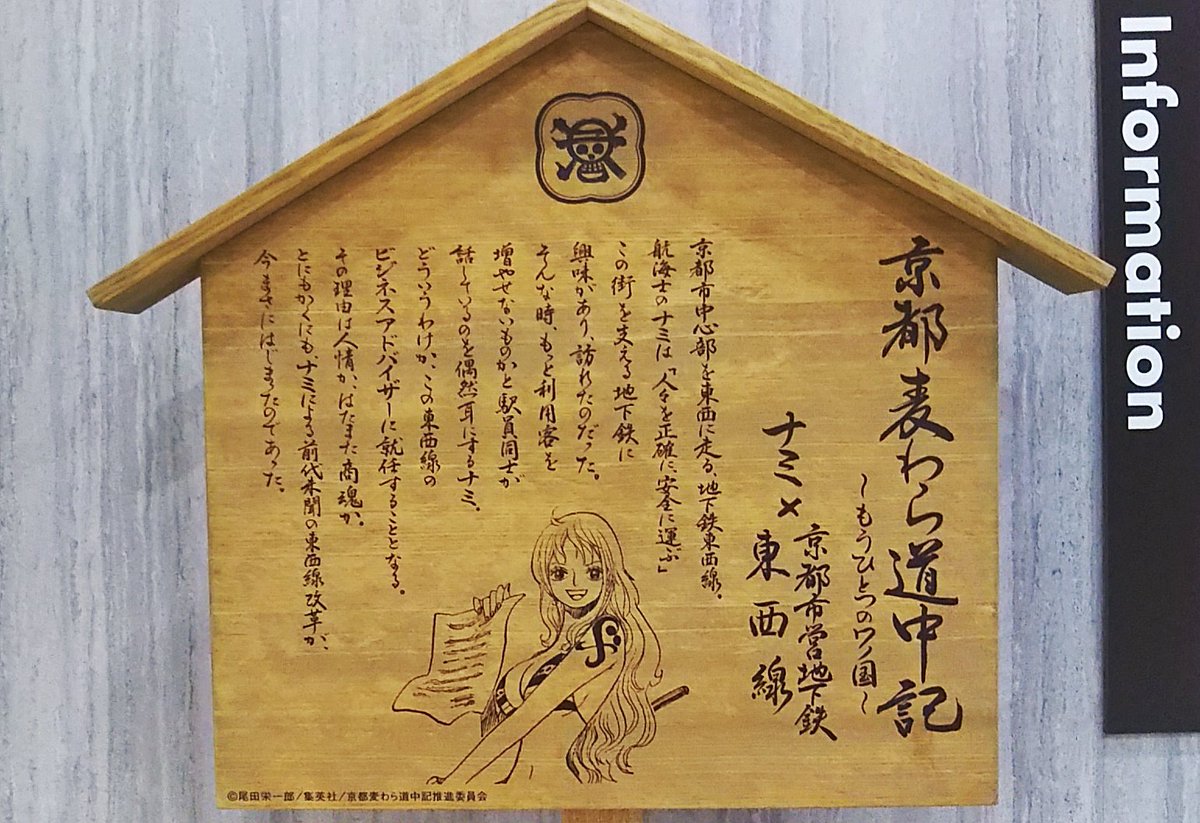 京都麦わら道中記
～もうひとつのワノ国～
ナミ×京都市営地下鉄
東西線
京都市中心部を東西に走る、地下鉄東西線。
航海士のナミは「人々を正確に、安全に運ぶ」
この街を支える地下鉄に
興味があり、訪れたのだった。
そんな時、もっと利用客を
増やせないものかと駅員同士が
話しているのを偶然耳にするナミ。
どういうわけか、この東西線の
ビジネスアドバイザーに就任することとなる。
その理由は人情か、はたまた商魂か。
とにもかくにも、ナミによる前代未聞の東西線改革が、
今まさにはじまったのであった。
©尾田栄一郎／集英社／京都麦わら道中記推進委員会
Information